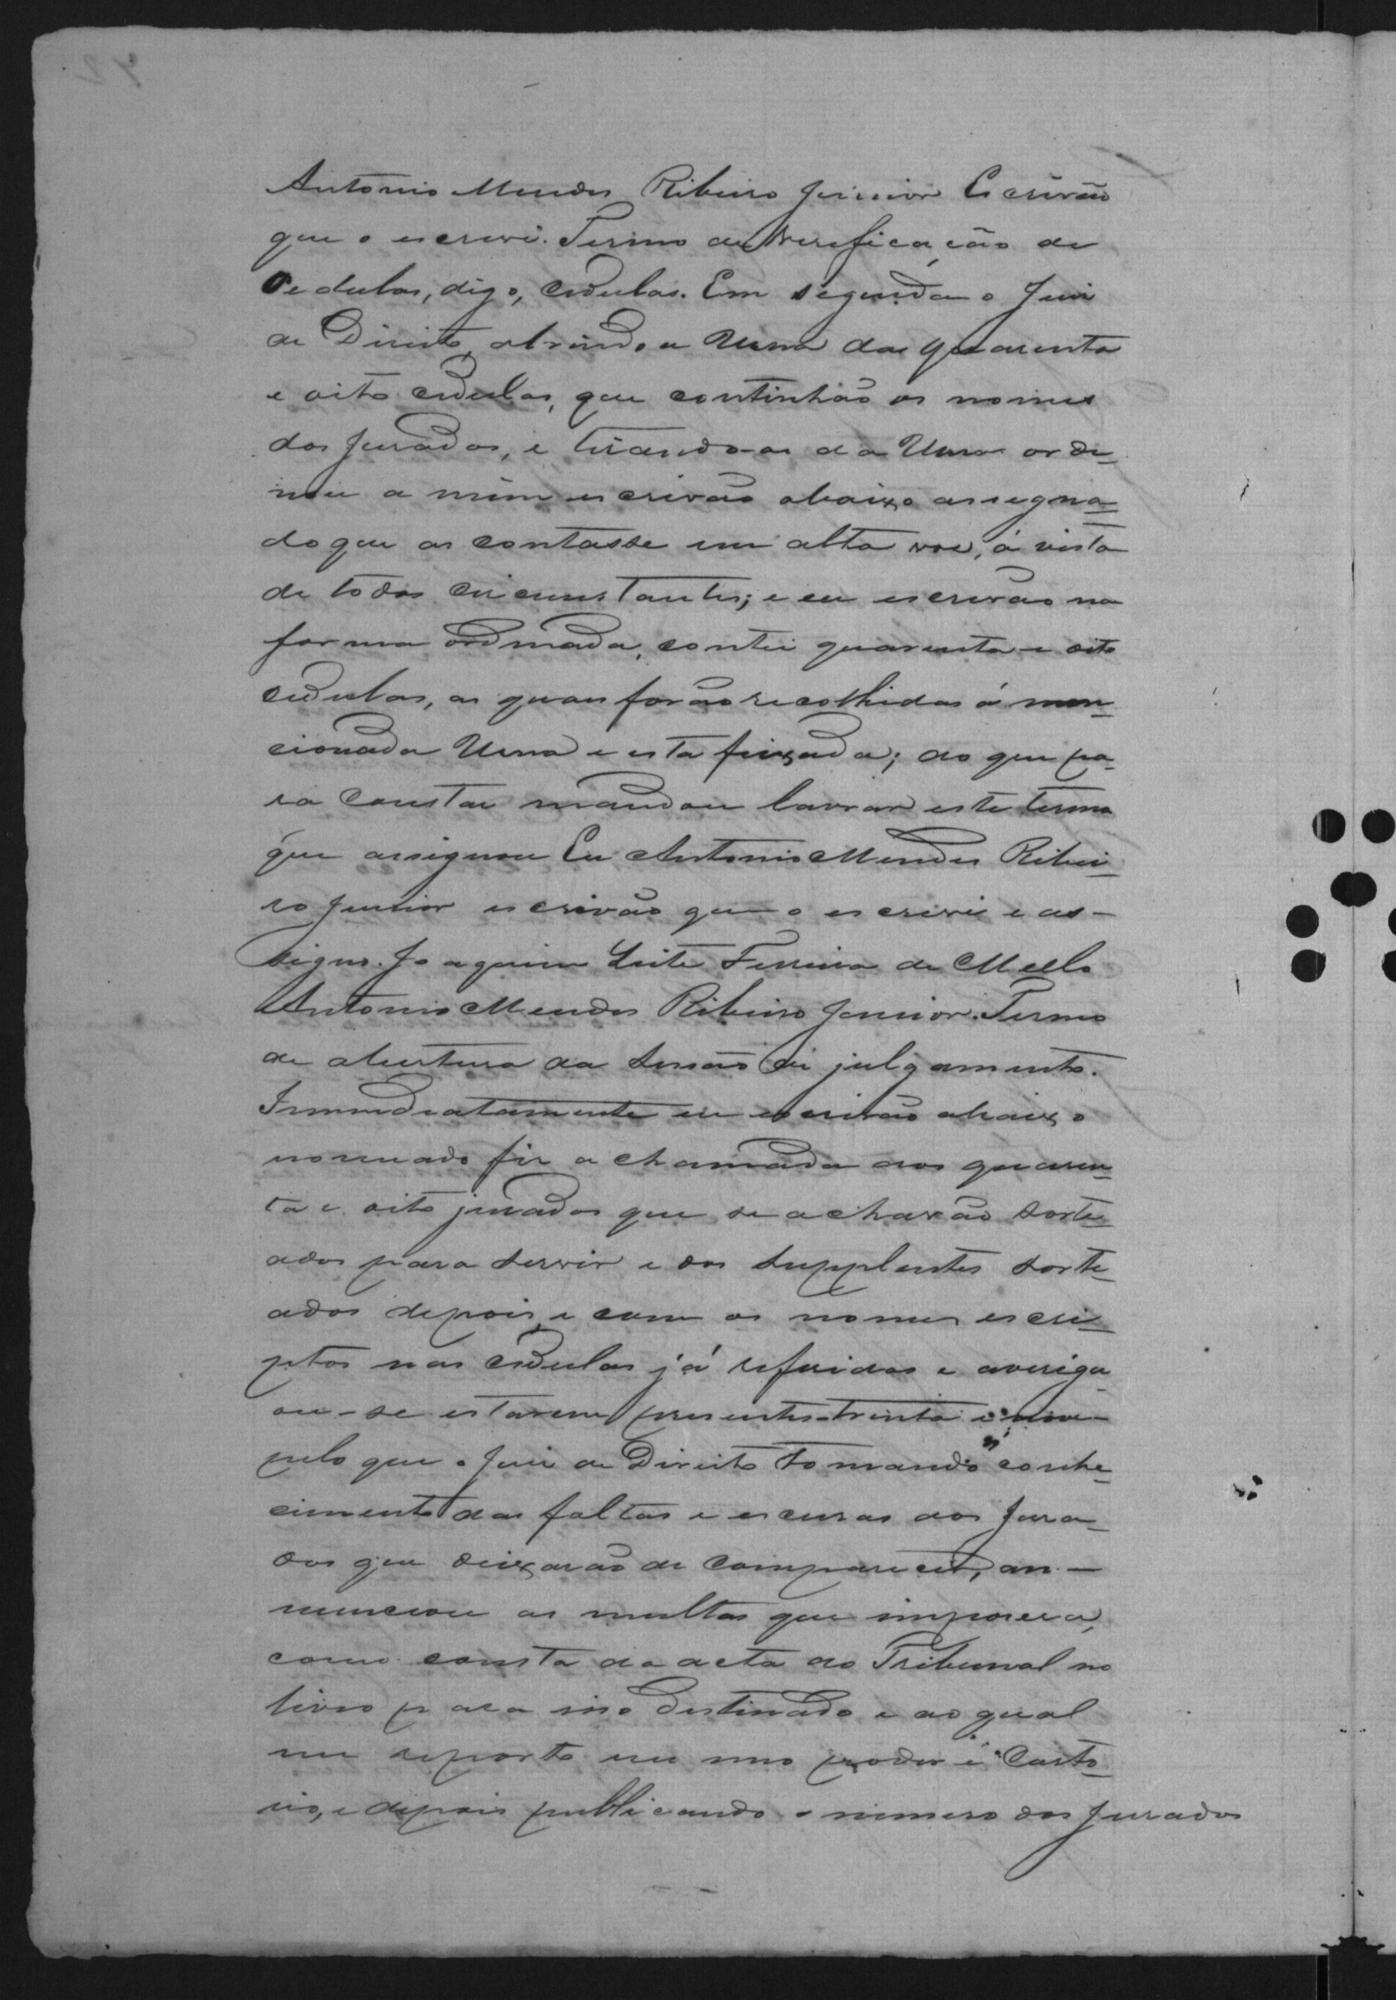 Antonio Mendes Ribeiro Junior Escrivão
que o escrevi. Termo de verificação de
Sedulas, digo, cedulas. Em seguida o Juiz
de Direito, abrindo a Urna das quarenta
e oito cedulas, que continhão os nomes
dos Jurados, e tirando-as da Urna orde-
nou a mim escrivão abaixo assegna-
do que as contasse em alta voz, á vista
de todos circunstantes; e eu escrivão na
forma ordenada, contei quarenta e oito
cedulas, as quaes forão recolhidas á men-
cionada Urna e esta feixada; do que pa-
ra constar mandou lavrar este termo
que assignou Eu Antonio Mendes Ribei-
ro Junior escrivão que o escrevi e as-
signo. Joaquim Leite Ferreira de Mello
Antonio Mendes Ribeiro Junior. Termo
de abertura da sessão de julgamento.
Immediatamente eu escrivão abaixo
nomeado fiz a chamada dos quaren-
ta e oito jurados que se acharão sorte-
ados para servir e dos supplentes sorte-
ados depois, e com os nomes escri-
ptos nas cedulas já referidas e averigu
ou-se estarem presentes trinta e
pelo que o Juiz de Direito tomando conhe-
cimento das faltas e escusas dos Jura-
dos que deixarão de comparecer, an-
nunciou as multas que imposera,
como consta da acta do Tribunal no
livro para isso destinado e ao qual
me reporto em meo poder e Carto-
rio, e depois publicando o numero dos Jurados